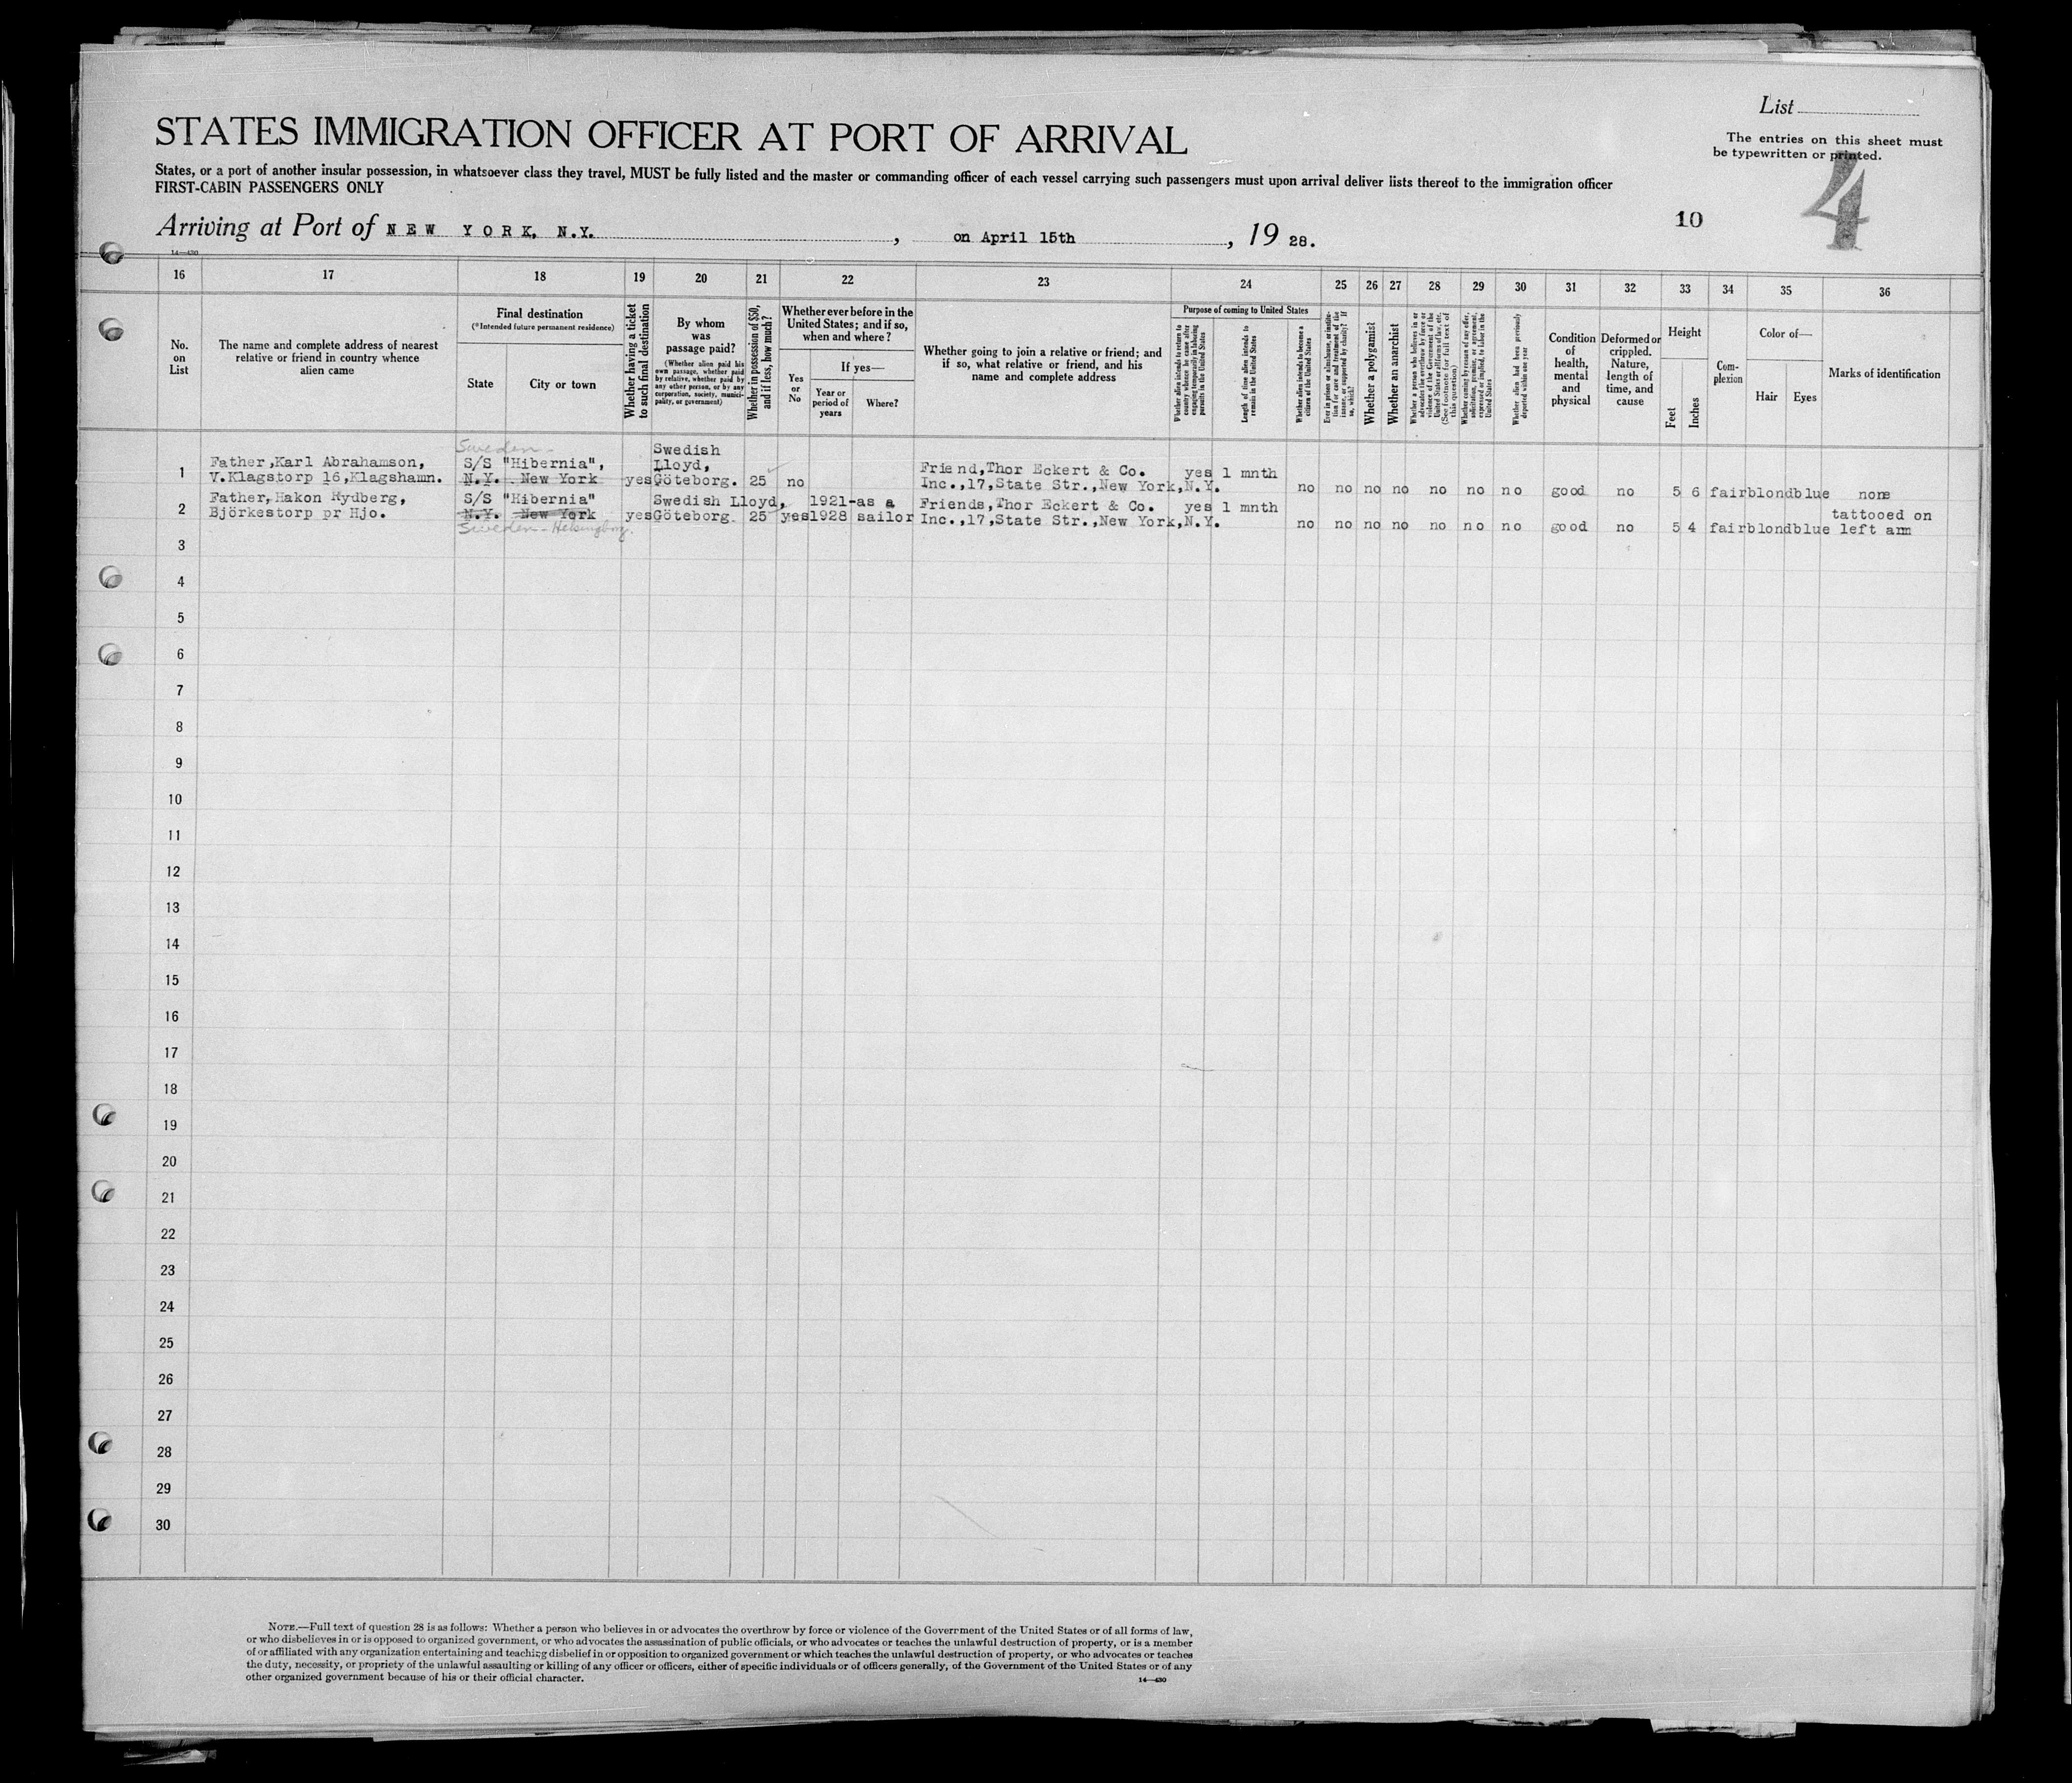 List
STATES IMMIGRATION OFFICER AT PORT OF ARRIVAL
The entries on this sheet must
be typewritten or printed.
States, or a port of another insular possession, in whatsoever class they travel, MUST be fully listed and the master or commanding officer of each vessel carrying such passengers must upon arrival deliver lists thereof to the immigration officer
FIRST-CABIN PASSENGERS ONLY
10
4
Arriving at Port of NEW YORK, N.Y. , on April 15th , 19 28.
14—430
16 17 18 19 20 21 22 23 24 25 26 27 28 29 30 31 32 33 34 35 36
No.
on
List
The name and complete address of nearest
relative or friend in country whence
alien came
Final destination
(*Intended future permanent residence)
State
City or town
Whether having a ticket
to such final destination
By whom
was
passage paid?
(Whether alien paid his
own passage, whether paid
by relative, whether paid by
any other person, or by any
corporation, society, munici-
pality, or government)
Whether in possession of $50,
and if less, how much?
Whether ever before in the
United States; and if so,
when and where?
Yes
or
No
If yes—
Year or
period of
years
Where?
Whether going to join a relative or friend; and
if so, what relative or friend, and his
name and complete address
Purpose of coming to United States
Whether alien intends to return to
country whence he came after
engaging temporarily in laboring
pursuits in the United States
Length of time alien intends to
remain in the United States
Whether alien intends to become a
citizen of the United States
Ever in prison or almshouse, or institu-
tion for care and treatment of the
insane, or supported by charity? If
so, which?
Whether a polygamist
Whether an anarchist
Whether a person who believes in or
advocates the overthrow by force or
violence of the Government of the
United States or all forms of law, etc.
(See footnote for full text of
this question)
Whether coming by reason of any offer,
solicitation, promise, or agreement,
expressed or implied, to labor in the
United States
Whether alien had been previously
deported within one year
Condition
of
health,
mental
and
physical
Deformed or
crippled.
Nature,
length of
time, and
cause
Height
Feet
Inches
Com-
plexion
Color of—
Hair
Eyes
Marks of identification
Sweden-
1 Father,Karl Abrahamson, S/S "Hibernia", Swedish Lloyd, Friend,Thor Eckert & Co. yes 1 mnth
V.Klagstorp 16,Klagshamn. N.Y. New York yes Göteborg. 25 no Inc.,17,State Str.,New York,N.Y. no no no no no no no good no 5 6 fair blond blue none
2 Father,Hakon Rydberg, S/S "Hibernia" Swedish Lloyd, 1921-as a Friends,Thor Eckert & Co. yes 1 mnth tattooed on
Björkestorp pr Hjo. N.Y. New York yes Göteborg. 25 yes 1928 sailor Inc.,17,State Str.,New York,N.Y. no no no no no no no good no 5 4 fair blond blue left arm
Sweden-Helsingborg.
3
4
5
6
7
8
9
10
11
12
13
14
15
16
17
18
19
20
21
22
23
24
25
26
27
28
29
30
NOTE.—Full text of question 28 is as follows: Whether a person who believes in or advocates the overthrow by force or violence of the Government of the United States or of all forms of law,
or who disbelieves in or is opposed to organized government, or who advocates the assassination of public officials, or who advocates or teaches the unlawful destruction of property, or is a member
of or affiliated with any organization entertaining and teaching disbelief in or opposition to organized government or which teaches the unlawful destruction of property, or who advocates or teaches
the duty, necessity, or propriety of the unlawful assaulting or killing of any officer or officers, either of specific individuals or of officers generally, of the Government of the United States or of any
other organized government because of his or their official character.
14—430